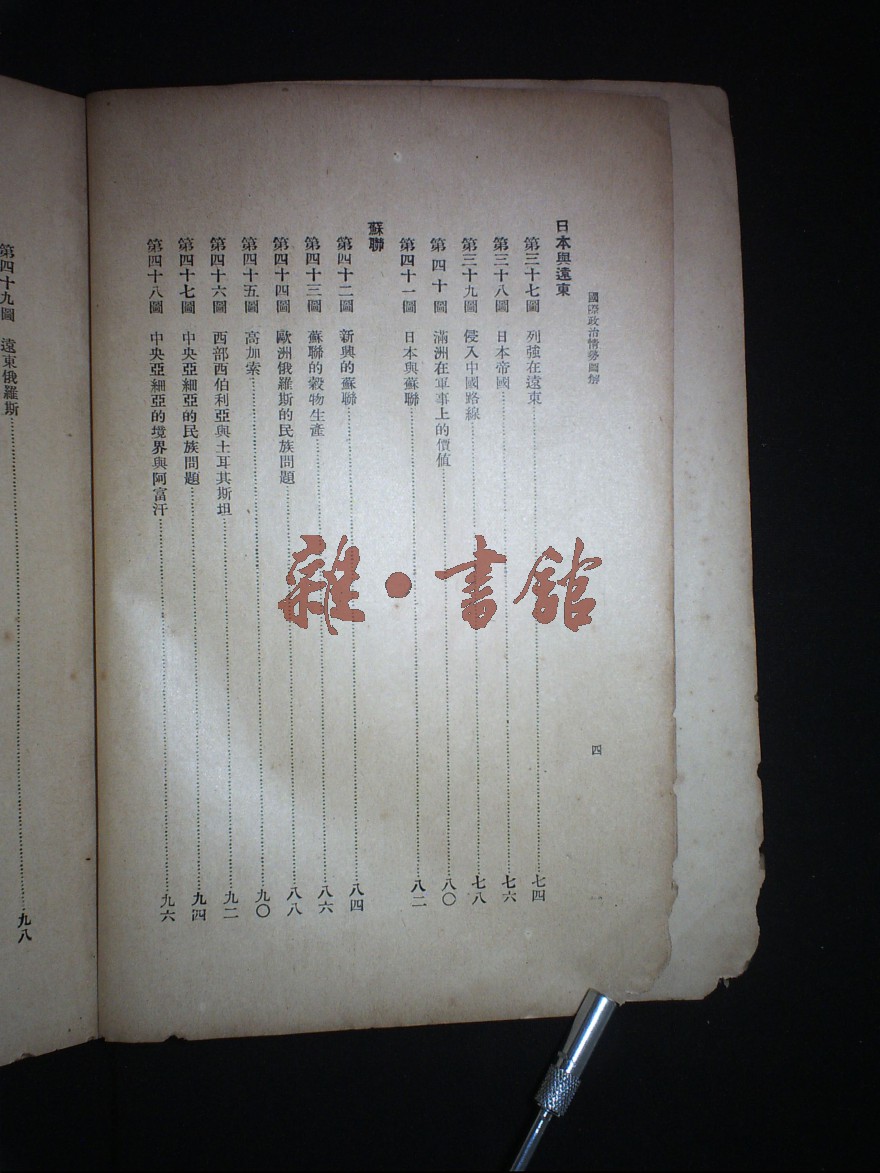 國際政治情勢圖解
四
日本與遠東
第三十七圖 列強在遠東 七四
第三十八圖 日本帝國 七六
第三十九圖 侵入中國路線 七八
第四十圖 滿洲在軍事上的價値 八〇
第四十一圖 日本與蘇聯 八二
蘇聯
第四十二圖 新興的蘇聯 八四
第四十三圖 蘇聯的穀物生產 八六
第四十四圖 歐洲俄羅斯的民族問題 八八
第四十五圖 高加索 九〇
第四十六圖 西部西伯利亞與土耳其斯坦 九二
第四十七圖 中央亞細亞的民族問題 九四
第四十八圖 中央亞細亞的境界與阿富汗 九六
第四十九圖 遠東俄羅斯 九八
雜·書館